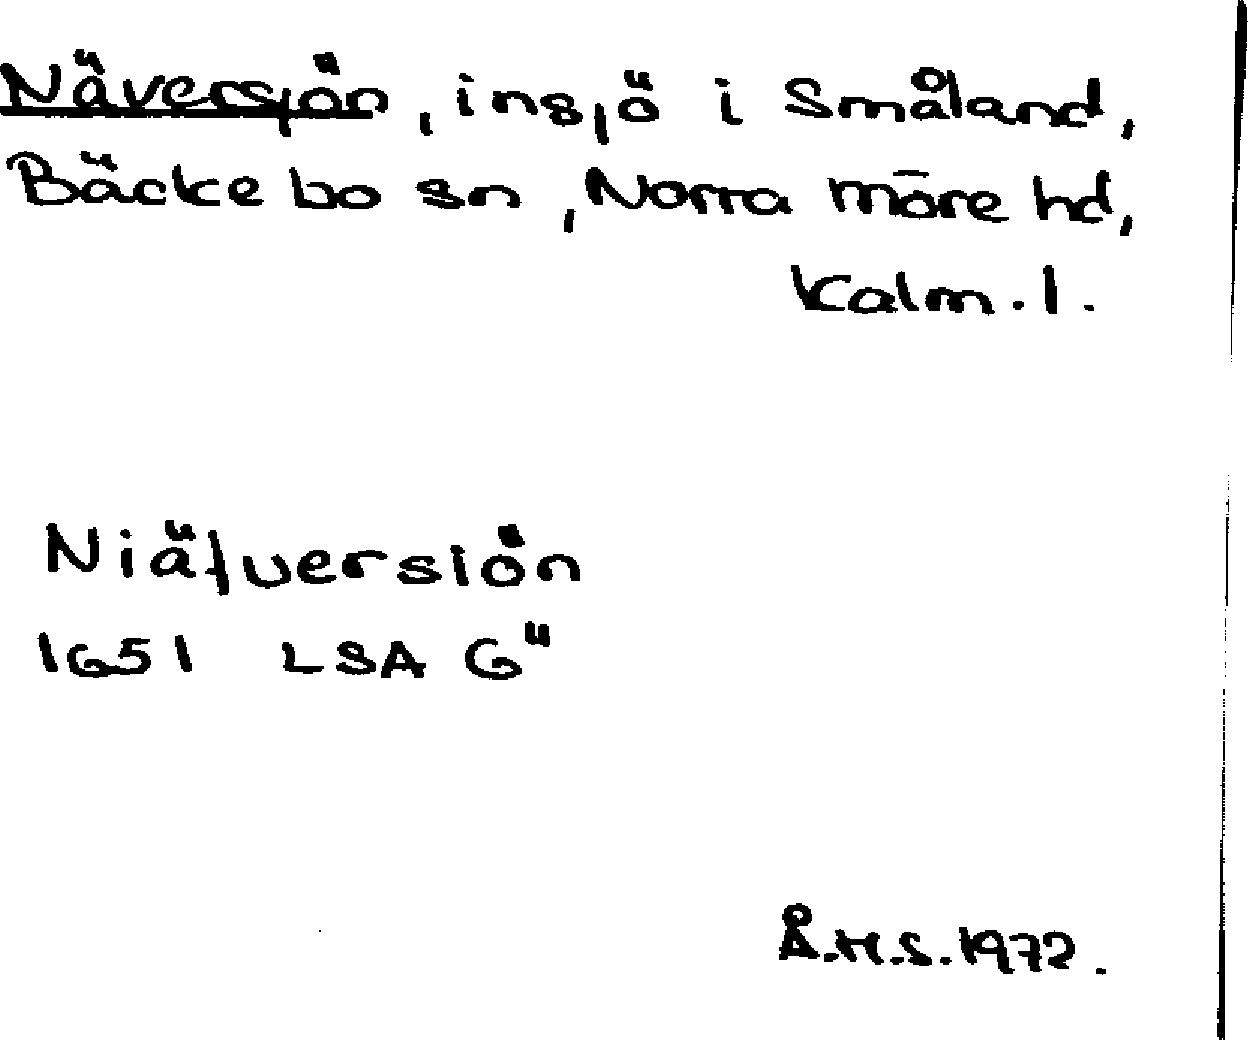 Näversjön, insjö i Småland,
Bäckebo sn, Norra Möre hd,
Kalm. l.
Niäfuersiön
1651 LSA G"
Å.H.S. 1972.